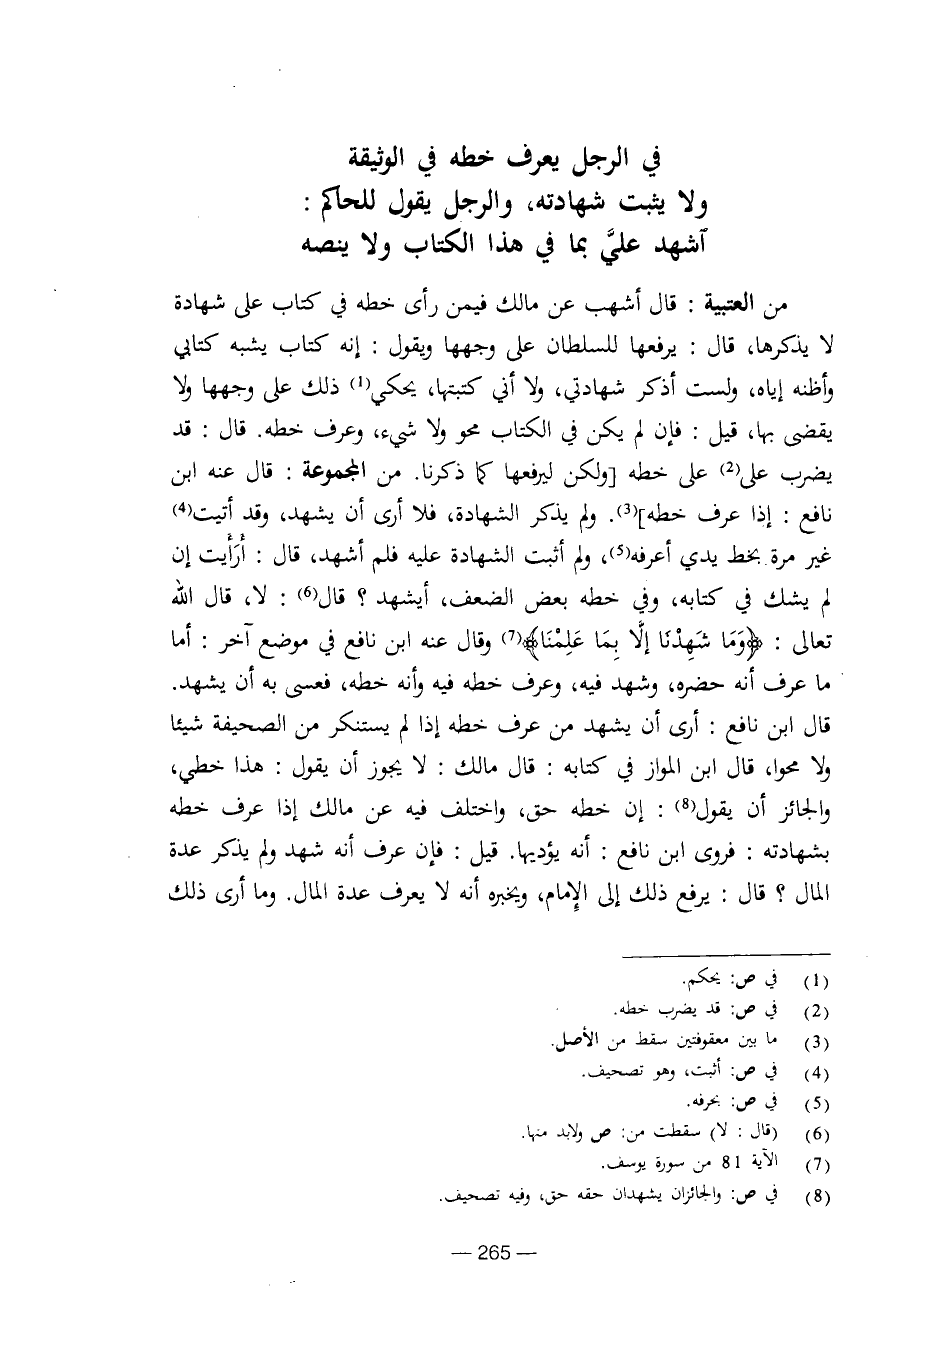 في الرجل يعرف خطه في الوثيقة
ولا يثبت شهادته، والرجل يقول للحاكم :
آشهد عليَّ بما في هذا الكتاب ولا ينصه
من العتبية : قال أشهب عن مالك فيمن رأى خطه في كتاب على شهادة
لا يذكرها، قال : يرفعها للسلطان على وجهها ويقول : إنه كتاب يشبه كتابي
وأظنه إياه، ولست أذكر شهادتي، ولا أني كتبتها، يحكي(1) ذلك على وجهها ولا
يقضى بها، قيل : فإن لم يكن في الكتاب محو ولا شيء، وعرف خطه. قال : قد
يضرب على(2) على خطه [ولكن ليرفعها كما ذكرنا. من المجموعة : قال عنه ابن
نافع : إذا عرف خطه](3). ولم يذكر الشهادة، فلا أرى أن يشهد، وقد أتيت(4)
غير مرة بخط يدي أعرفه(5)، ولم أثبت الشهادة عليه فلم أشهد، قال : أَرَأَيت إن
لم يشك في كتابه، وفي خطه بعض الضعف، أيشهد ؟ قال(6) : لا، قال الله
تعالى : ﴿وَمَا شَهِدْنَا إلَّا بِمَا عَلِمْنَا﴾(7) وقال عنه ابن نافع في موضع آخر : أما
ما عرف أنه حضره، وشهد فيه، وعرف خطه فيه وأنه خطه، فعسى به أن يشهد.
قال ابن نافع : أرى أن يشهد من عرف خطه إذا لم يستنكر من الصحيفة شيئا
ولا محوا، قال ابن المواز في كتابه : قال مالك : لا يجوز أن يقول : هذا خطي،
والجائز أن يقول(8) : إن خطه حق، واختلف فيه عن مالك إذا عرف خطه
بشهادته : فروى ابن نافع : أنه يؤديها. قيل : فإن عرف أنه شهد ولم يذكر عدة
المال ؟ قال : يرفع ذلك إلى الإمام، ويخبره أنه لا يعرف عدة المال. وما أرى ذلك
(1) في ص: يحكم.
(2) في ص: قد يضرب خطه.
(3) ما بين معقوفتين سقط من الأصل.
(4) في ص: أثبت، وهو تصحيف.
(5) في ص: بحرفه.
(6) (قال : لا) سقطت من: ص ولابد منها.
(7) الآية 81 من سورة يوسف.
(8) في ص: والجائزان يشهدان حقه حق، وفيه تصحيف.
— 265 —